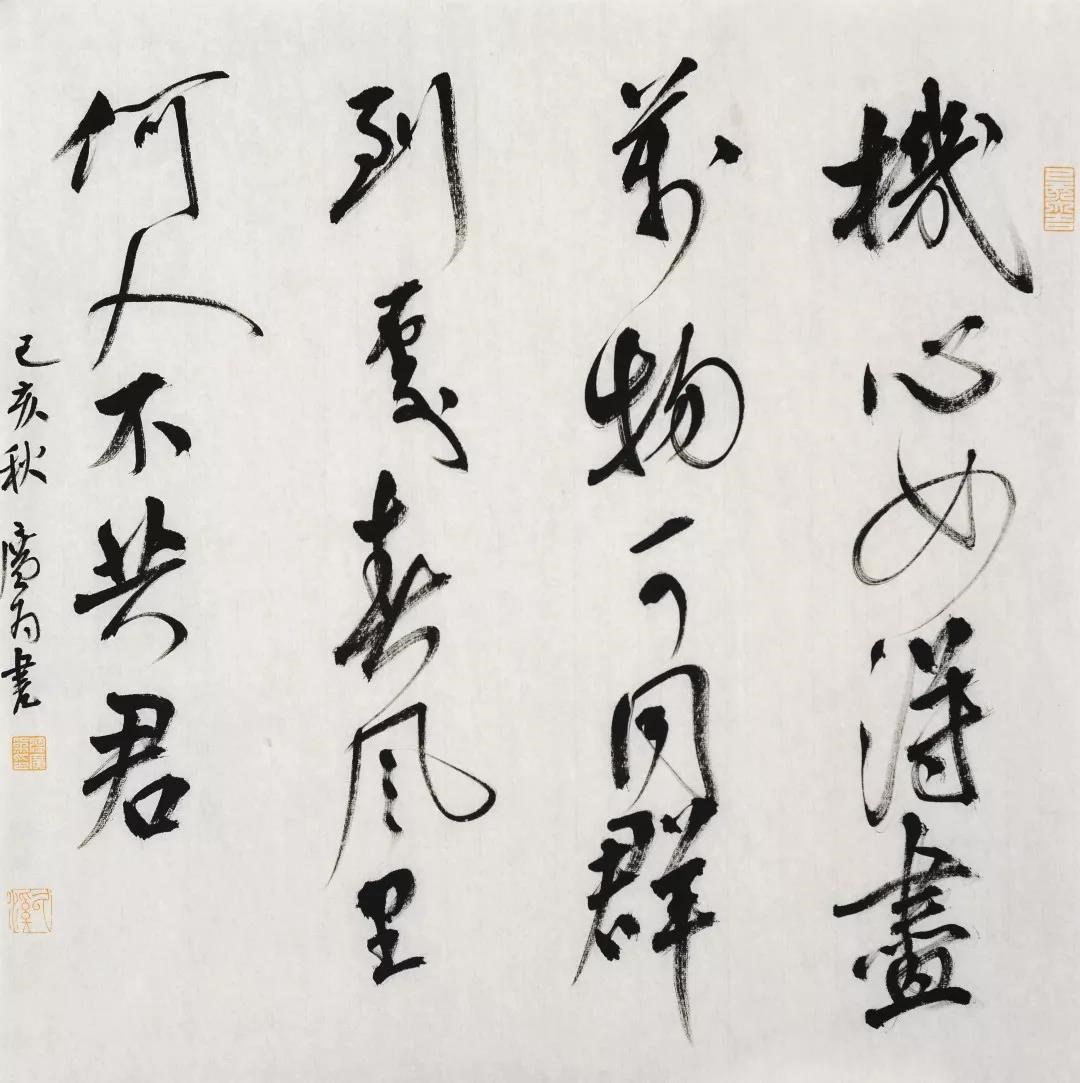 機心如得盡
萬物可同群
到處春風里
何人不共君
己亥秋 廣為書